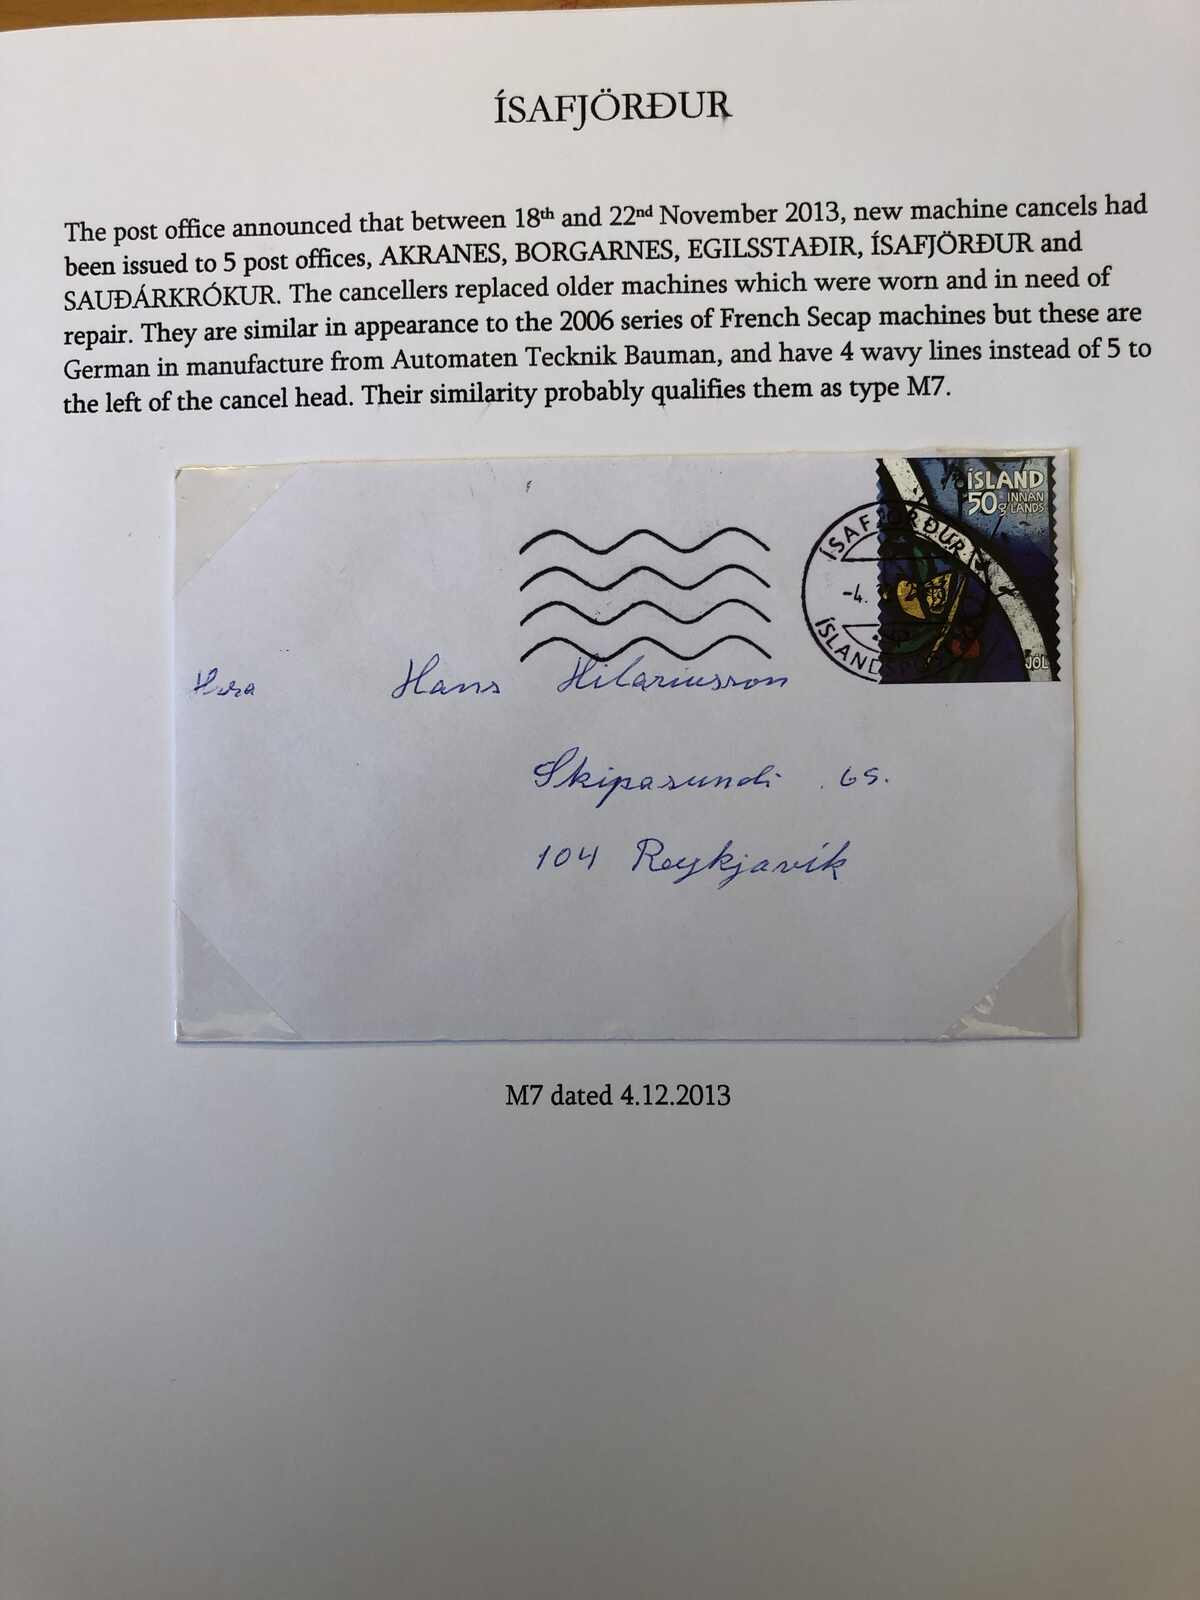 ÍSAFJÖRÐUR
The post office announced that between 18th and 22nd November 2013, new machine cancels had
been issued to 5 post offices, AKRANES, BORGARNES, EGILSSTAÐIR, ÍSAFJÖRÐUR and
SAUÐÁRKRÓKUR. The cancellers replaced older machines which were worn and in need of
repair. They are similar in appearance to the 2006 series of French Secap machines but these are
German in manufacture from Automaten Tecknik Bauman, and have 4 wavy lines instead of 5 to
the left of the cancel head. Their similarity probably qualifies them as type M7.
ÍSLAND
50g INNANLANDS
JÓL
ÍSAFJÖRÐUR
-4.
Hans Hilariusson
Skipasundi 65.
104 Reykjavík
M7 dated 4.12.2013